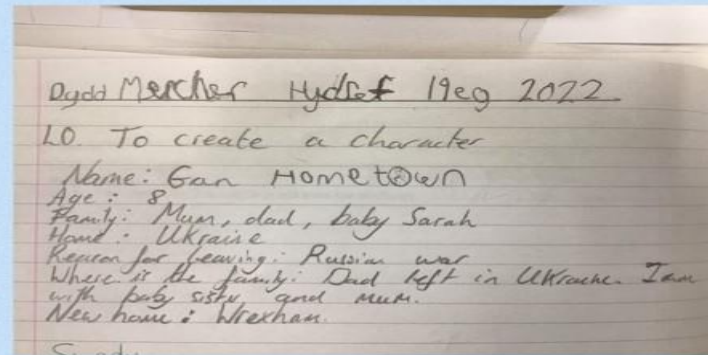 Dydd Mercher Hydref 19eg 2022
LO. To create a character
Name: Gan Hometown
Age: 8
Family: Mum, dad, baby Sarah
Home: Ukraine
Reason for leaving: Russian war
Where is the family: Dad left in Ukraine. I am
with baby sister and mum.
New home: Wrexham.